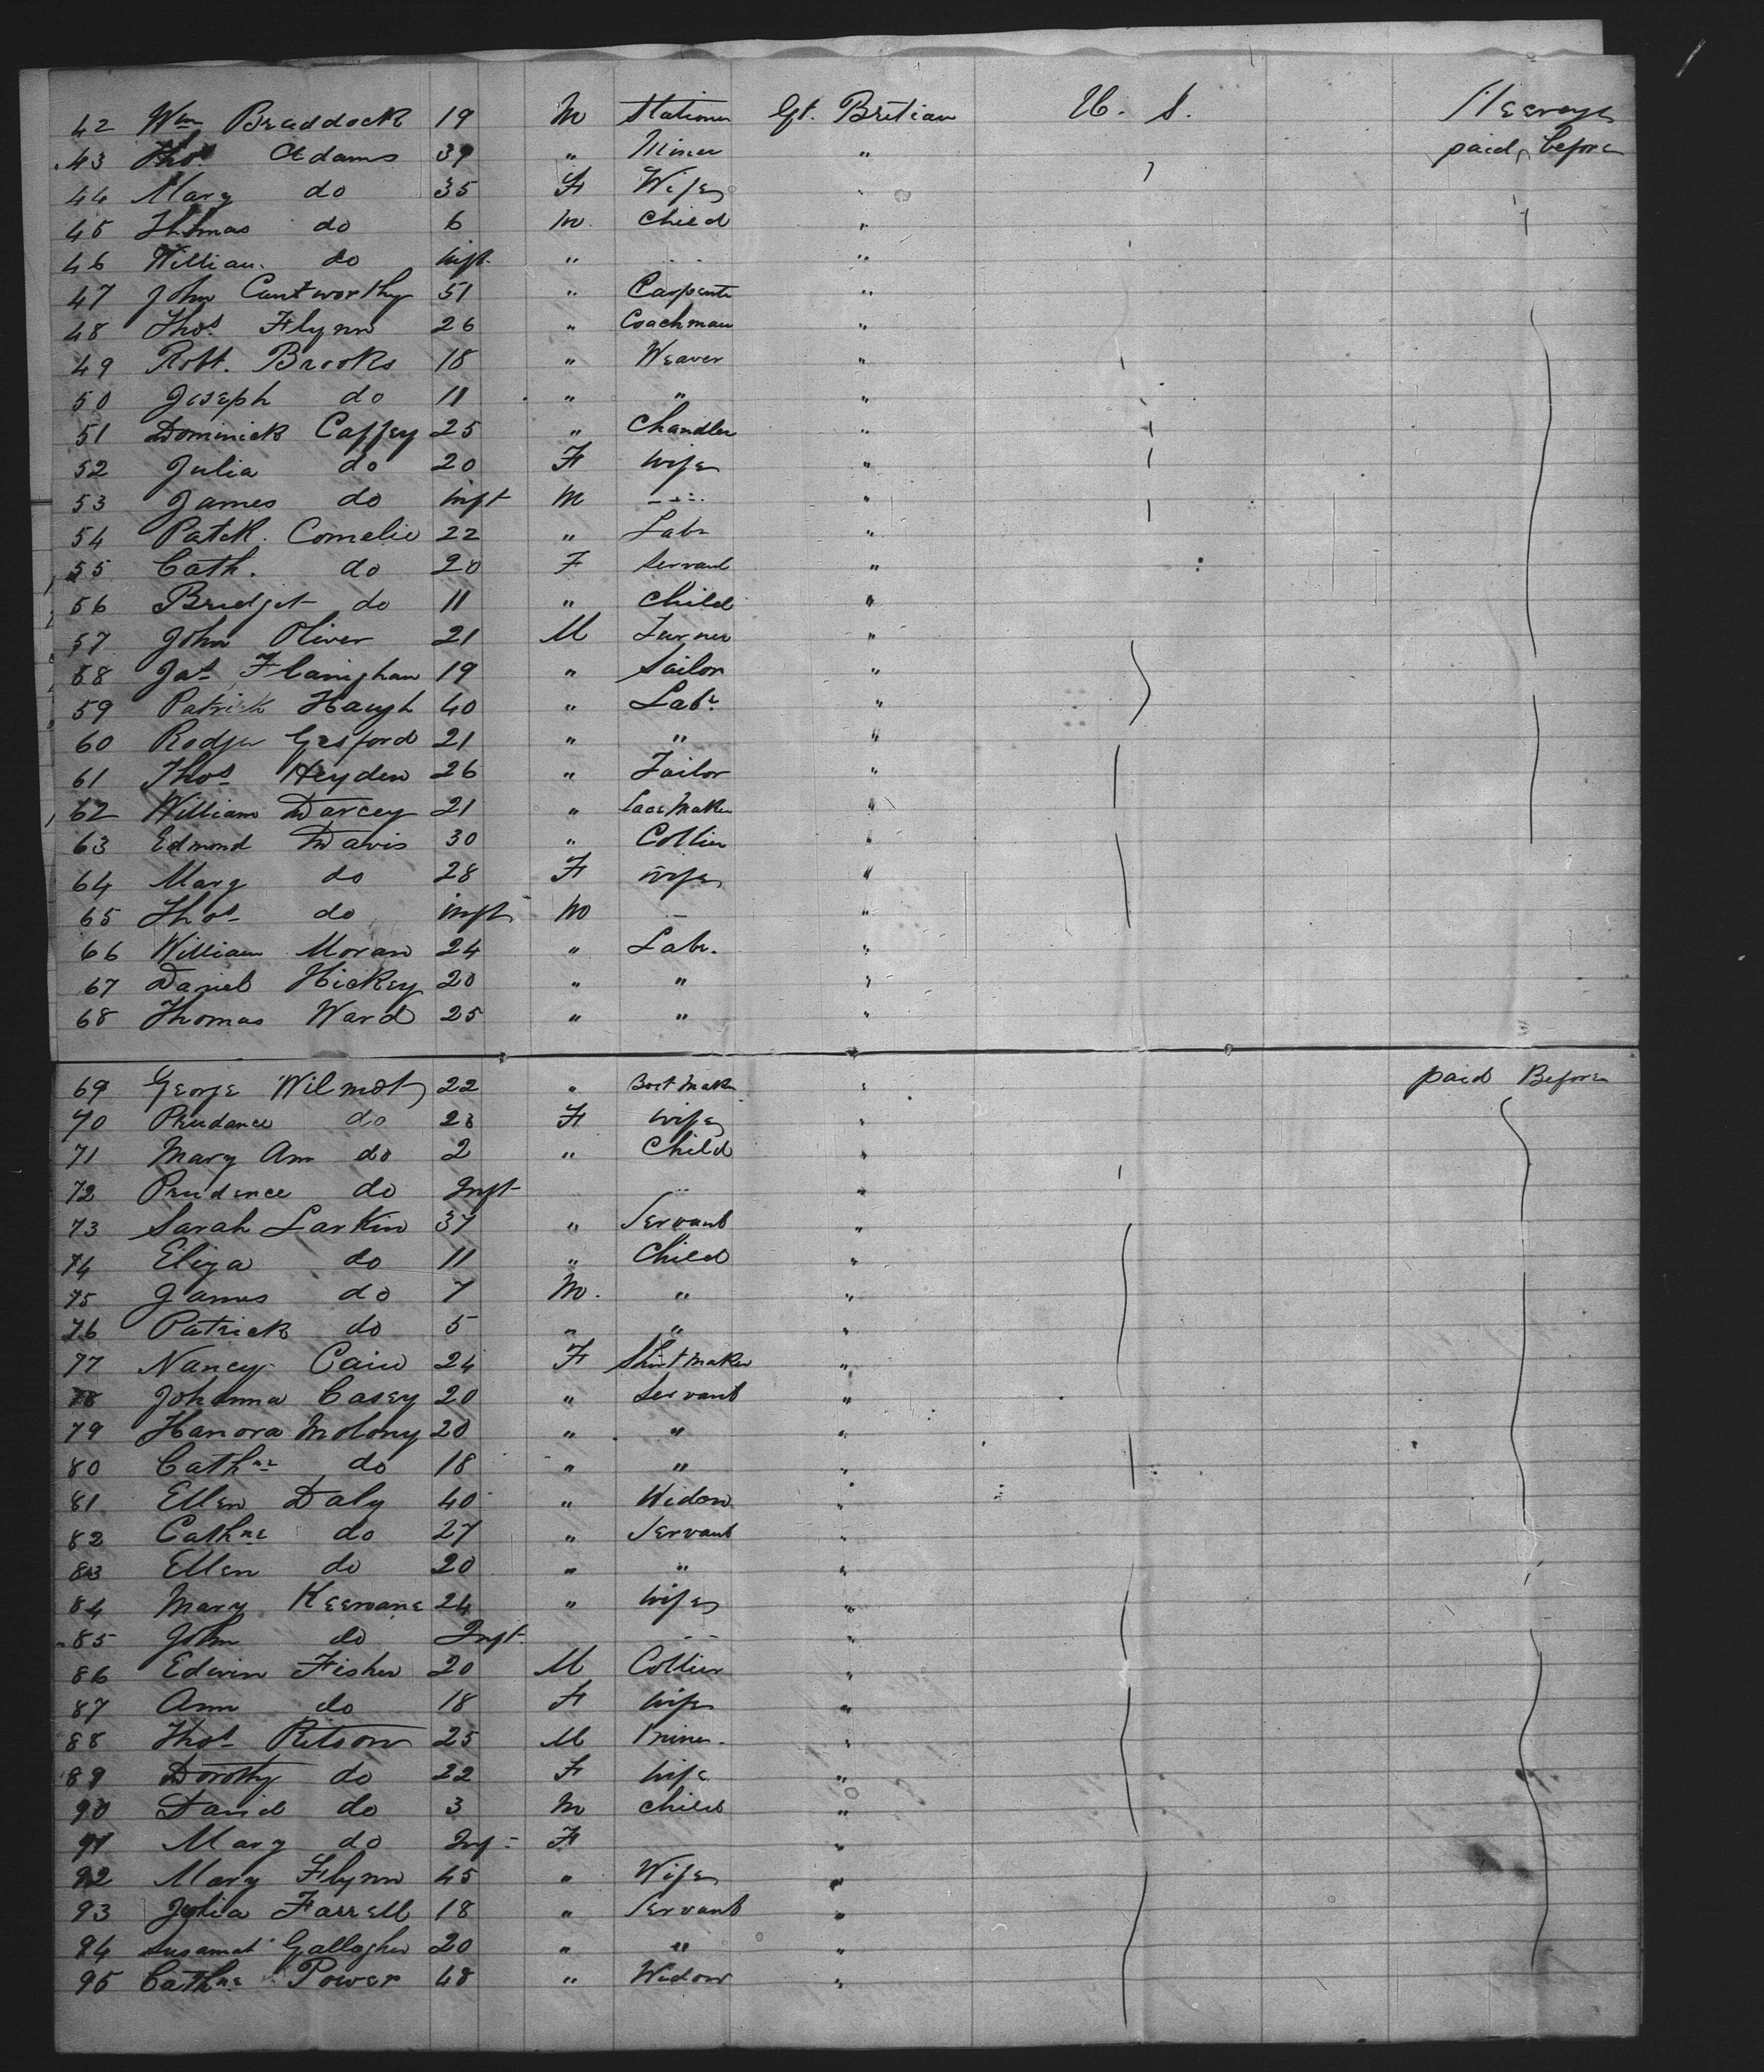 42 Wm Braddock 19 M Stationer Gt. Britian U. S. Steerage
43 Thos Adams 39 " Miner " paid before
44 Mary do 35 F Wife "
45 Thomas do 6 M. Child "
46 William do inft. " "
47 John Cantworthy 51 " Carpente "
48 Thos. Flynn 26 " Coachman "
49 Robt. Brooks 18 " Weaver "
50 Joseph do 11 " " "
51 Dominick Caffey 25 " Chandler "
52 Julia do 20 F wife "
53 James do inft M "
54 Patck. Comelie 22 " Labr "
55 Cath. do 20 F Servant "
56 Bridget do 11 " Child "
57 John Oliver 21 M Turner "
58 Jas Flanighan 19 " Sailor "
59 Patrick Haugh 40 " Labr. "
60 Rodger Gesford 21 " " "
61 Thos Heyden 26 " Tailor "
62 William Darcey 21 " Lace Maker "
63 Edmond Davis 30 " Collier "
64 Mary do 28 F wife "
65 Thos do inft M - "
66 William Moran 24 " Labr. "
67 Daniel Hickey 20 " " "
68 Thomas Ward 25 " " "
69 George Wilmot 22 " Boot Maker " paid Before
70 Prudance do 23 F wife "
71 Mary Ann do 2 " Child "
72 Prudence do Inft "
73 Sarah Larkin 37 " Servant "
74 Eliza do 11 " Child "
75 James do 7 M. " "
76 Patrick do 5 " " "
77 Nancy Cain 24 F Shirt maker "
78 Johanna Casey 20 " Servant "
79 Hanora Molony 20 " " "
80 Cathne do 18 " " "
81 Ellen Daly 40 " Widow "
82 Cathne do 27 " Servant "
83 Ellen do 20 " " "
84 Mary Keervane 24 " wife "
85 John do Inft "
86 Edwin Fisher 20 M Collier "
87 Ann do 18 F wife "
88 Thos Ritson 25 M Miner "
89 Dorothy do 22 F wife "
90 David do 3 M child "
91 Mary do Inf F "
92 Mary Flynn 45 " Wife "
93 Julia Farrell 18 " Servant "
94 Susanah Gallagher 20 " " "
95 Cathne Power 48 " Widow "